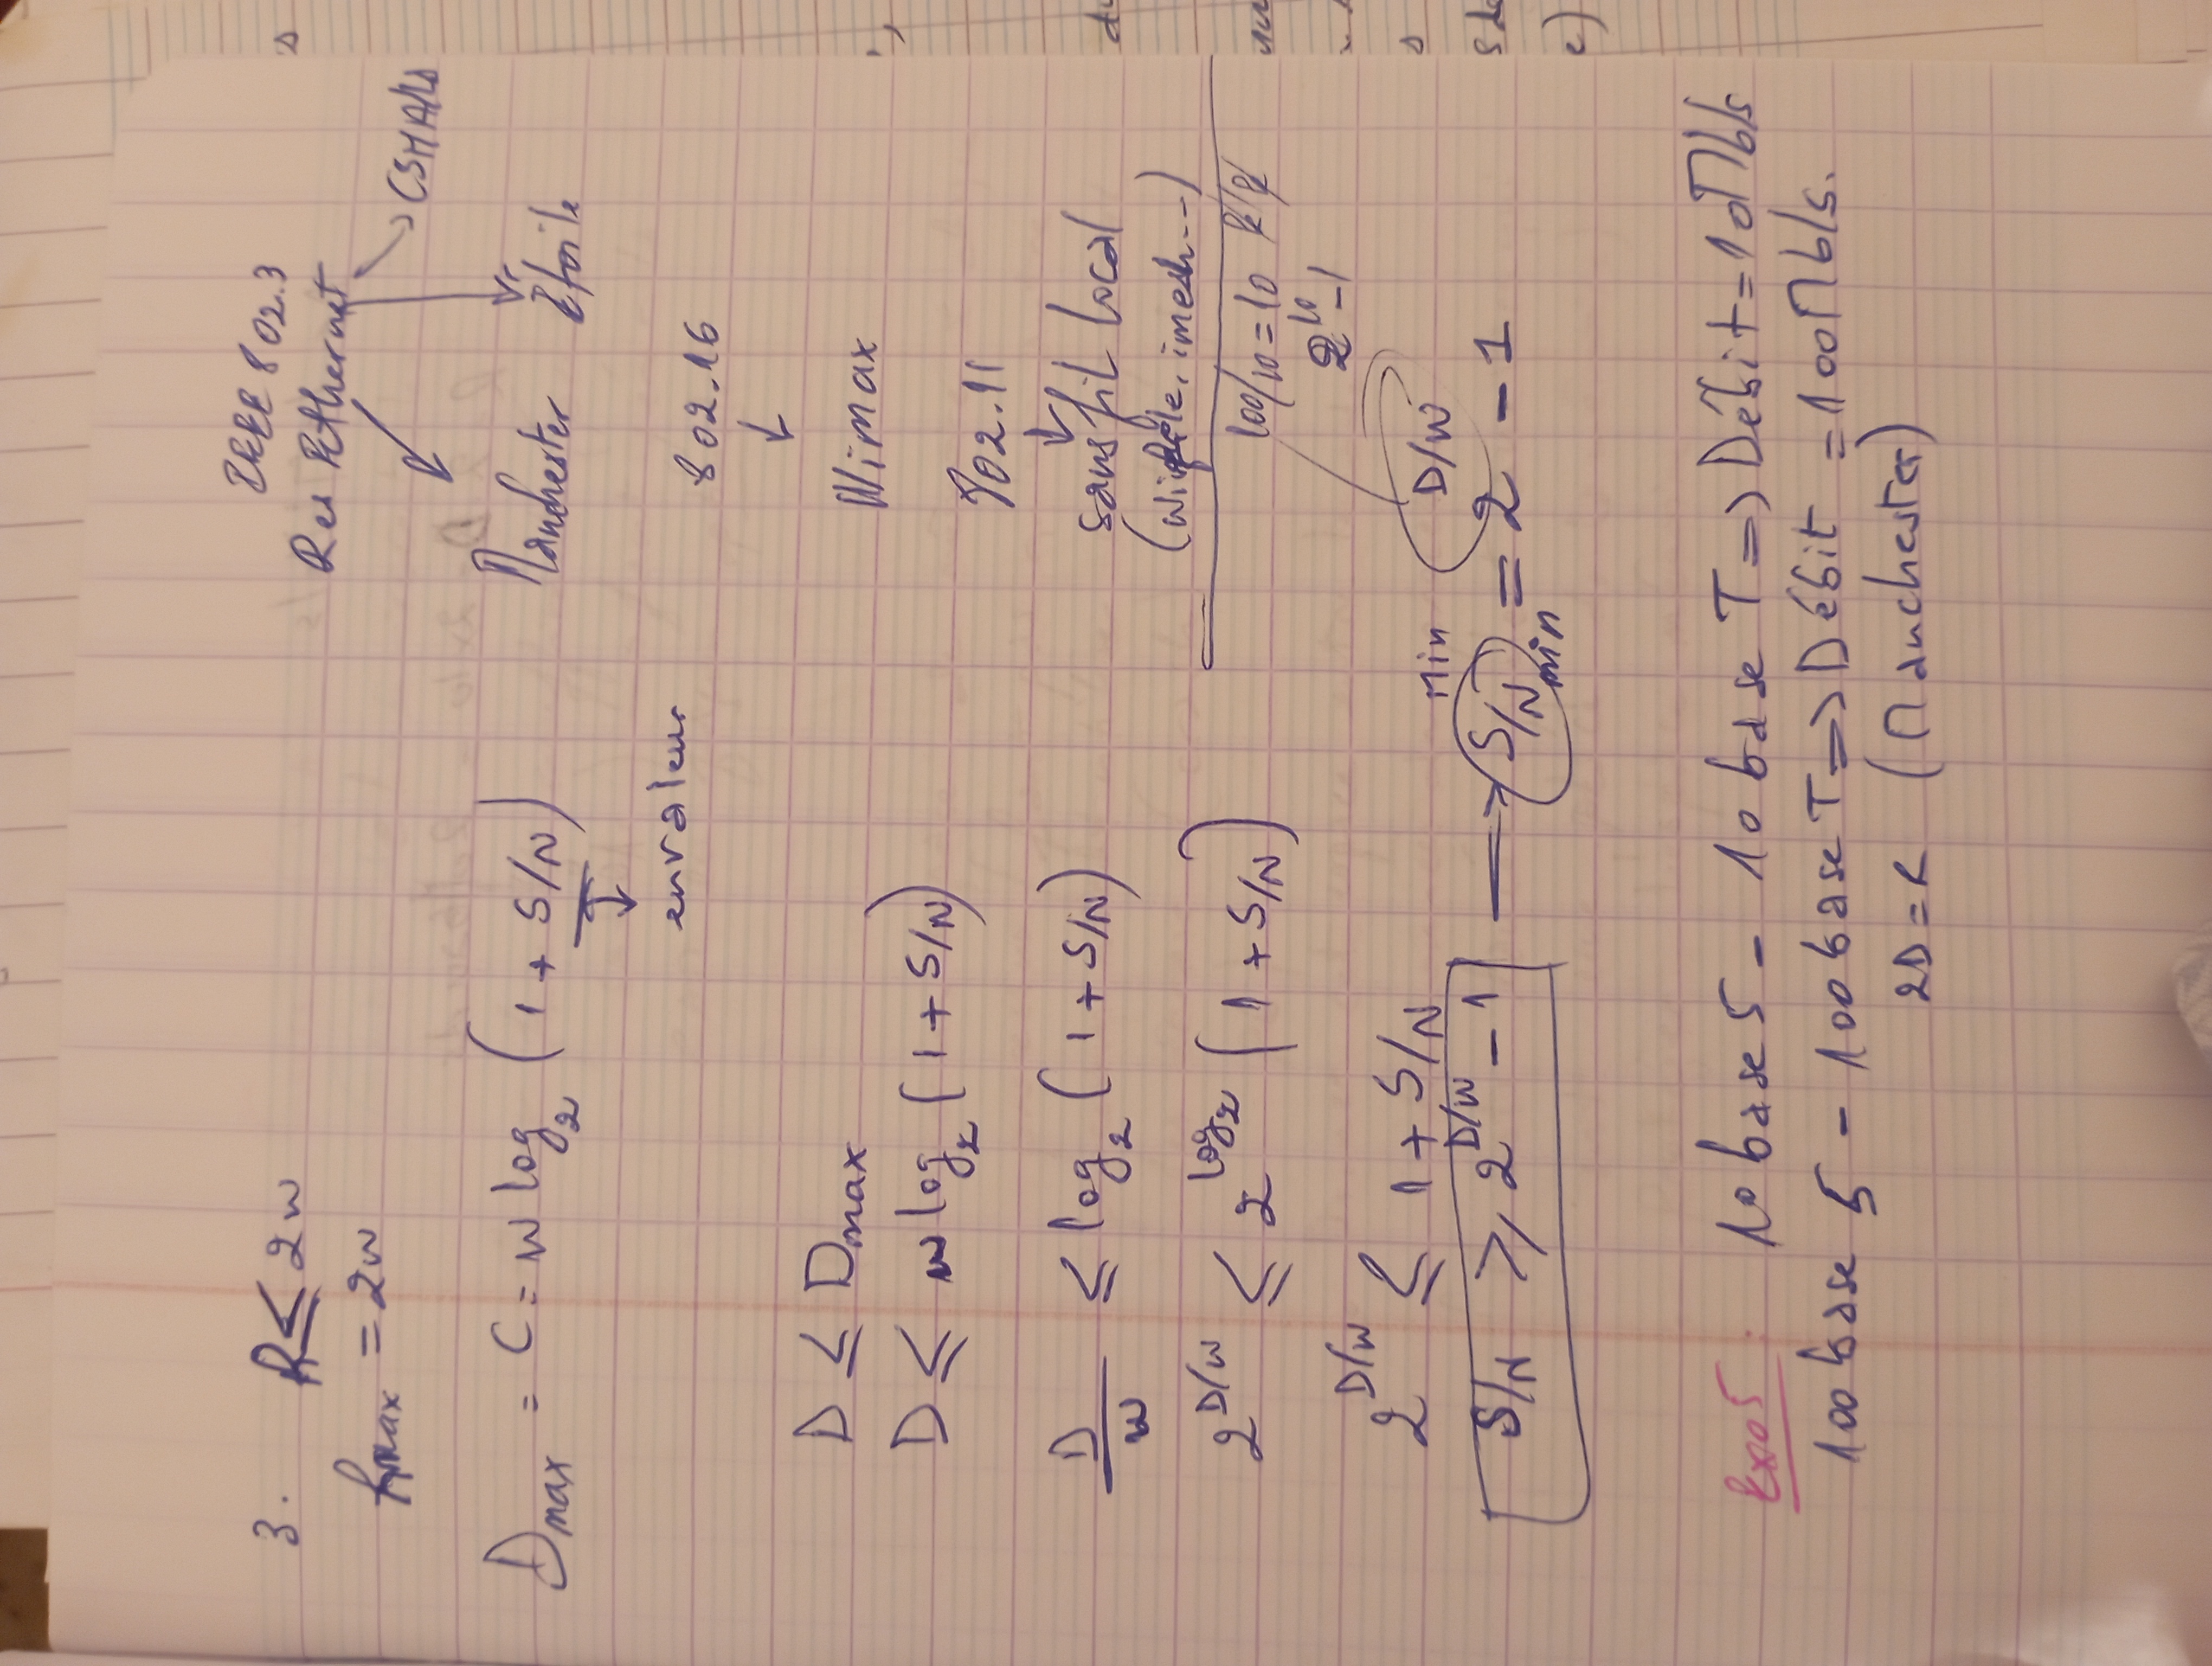 3. R ≤ 2W
Rmax = 2W
Dmax = C = W log₂ (1 + S/N)
en valeur
D ≤ Dmax
D ≤ W log₂ (1 + S/N)
D/W ≤ log₂ (1 + S/N)
2^(D/W) ≤ 2^(log₂ (1 + S/N))
2^(D/W) ≤ 1 + S/N
S/N ≥ 2^(D/W) - 1 → S/N min = 2^(D/W) - 1
Min
IEEE 802.3
Res Ethernet
CSMA/CD
Manchester
802.16
Wimax
802.11
sans fil local
100/10 = 10
2^10 - 1
Exo5:
10base5 - 10baseT => Débit = 10Mb/s
100base5 - 100baseT => Débit = 100Mb/s.
2D = R (Manchester)